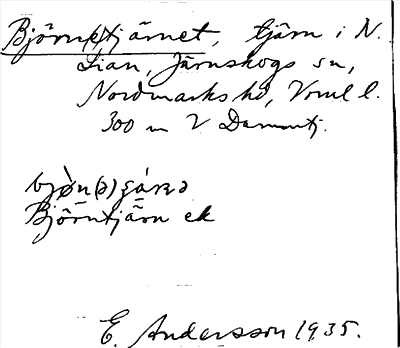 Björn(e)tjärnet, tjärn i N.
Lian, Järnskogs sn,
Nordmarks hd, Vrml l.
300 m V Dammtj.
Björntjärn ek
E. Andersson 1935.